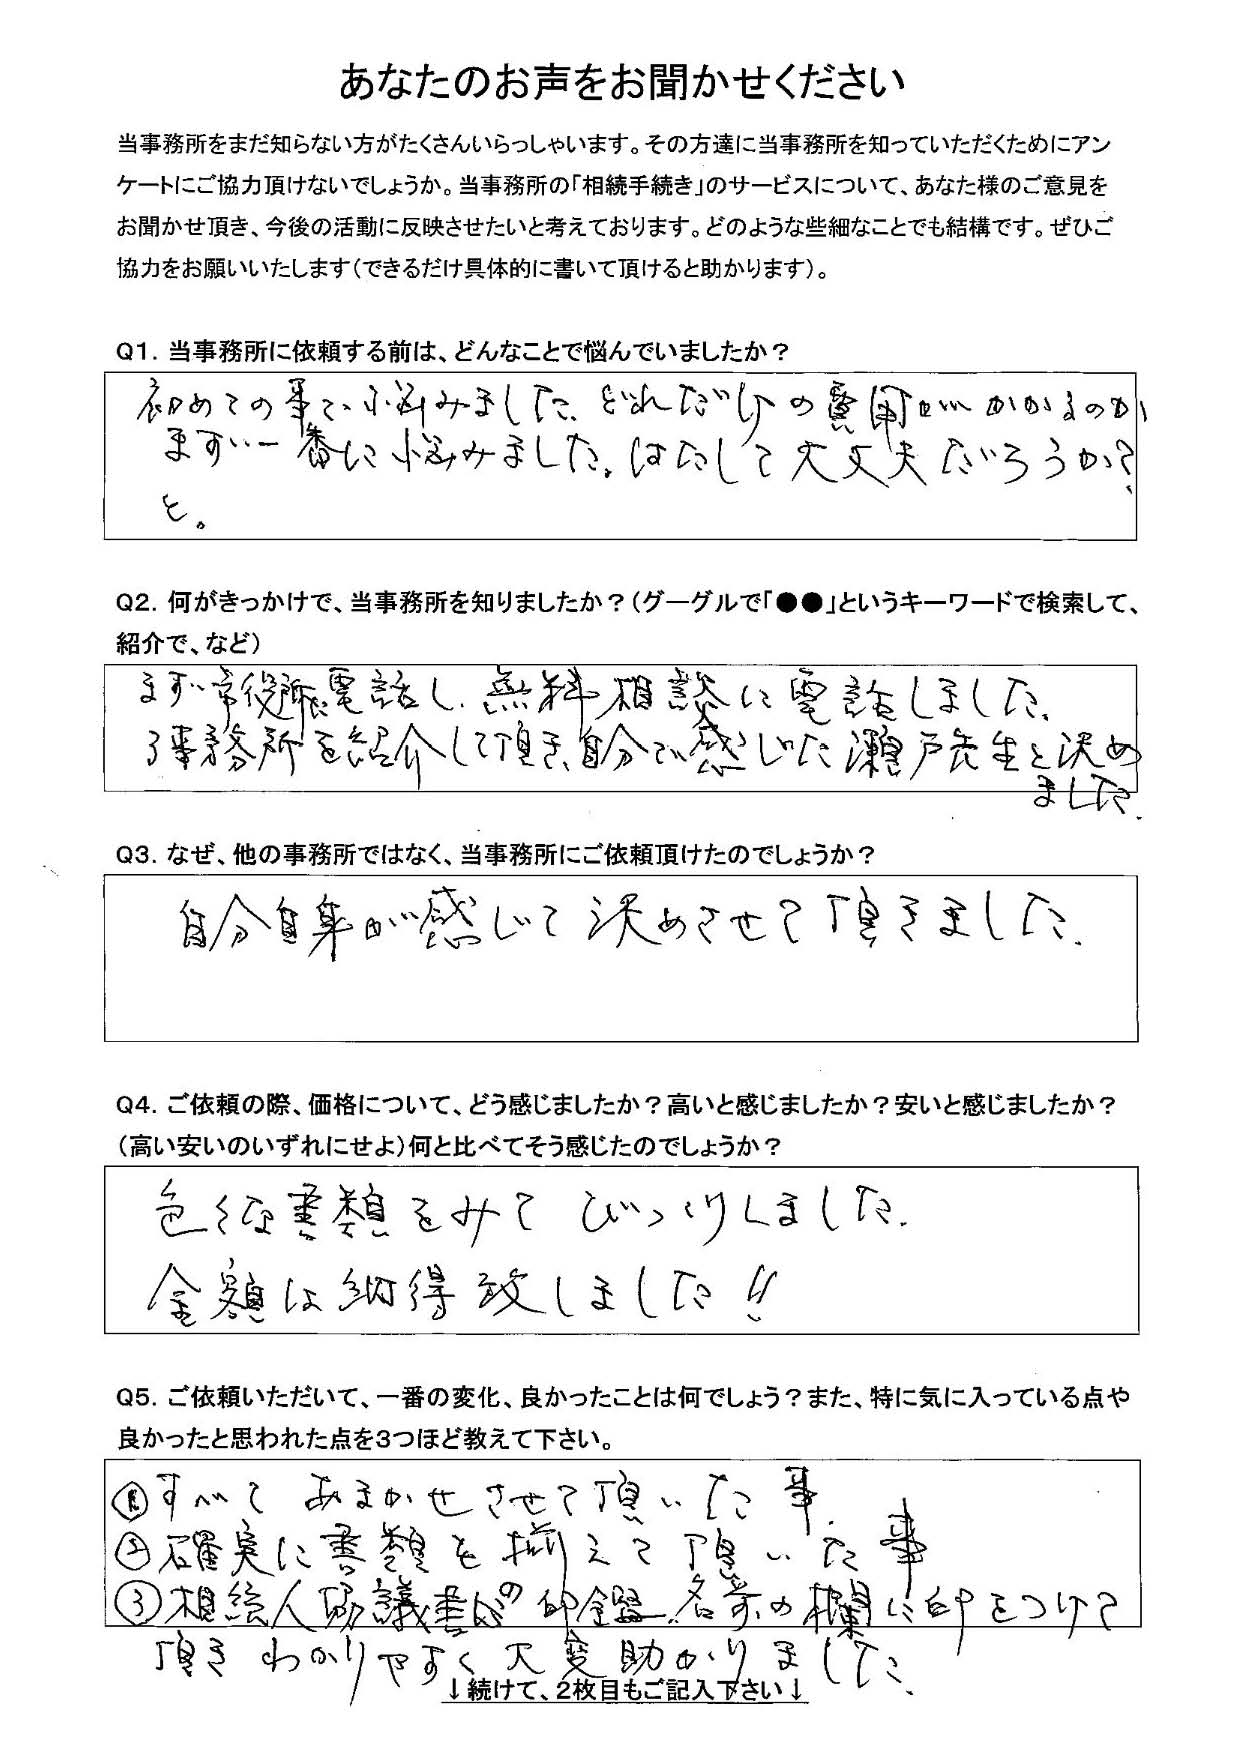 あなたのお声をお聞かせください
当事務所をまだ知らない方がたくさんいらっしゃいます。その方達に当事務所を知っていただくためにアン
ケートにご協力頂けないでしょうか。当事務所の「相続手続き」のサービスについて、あなた様のご意見を
お聞かせ頂き、今後の活動に反映させたいと考えております。どのような些細なことでも結構です。ぜひご
協力をお願いいたします（できるだけ具体的に書いて頂けると助かります）。
Q1. 当事務所に依頼する前は、どんなことで悩んでいましたか？
初めての事で悩みました。どれだけの費用がかかるのか
まず一番に悩みました。はたして大丈夫だろうか？
と。
Q2. 何がきっかけで、当事務所を知りましたか？（グーグルで「●●」というキーワードで検索して、
紹介で、など）
まず市役所に電話し、無料相談に電話しました。
3事務所を紹介して頂き、自分で感じた瀬戸先生と決め
ました。
Q3. なぜ、他の事務所ではなく、当事務所にご依頼頂けたのでしょうか？
自分自身が感じて決めさせて頂きました。
Q4. ご依頼の際、価格について、どう感じましたか？高いと感じましたか？安いと感じましたか？
（高い安いのいずれにせよ）何と比べてそう感じたのでしょうか？
色々な書類をみてびっくりしました。
金額は納得致しました!!
Q5. ご依頼いただいて、一番の変化、良かったことは何でしょう？また、特に気に入っている点や
良かったと思われた点を3つほど教えて下さい。
①すべておまかせさせて頂いた事。
②確実に書類を揃えて頂いた事
③相続人協議書の印鑑、名前の欄に印をつけて
頂きわかりやすく大変助かりました。
↓続けて、2枚目もご記入下さい↓